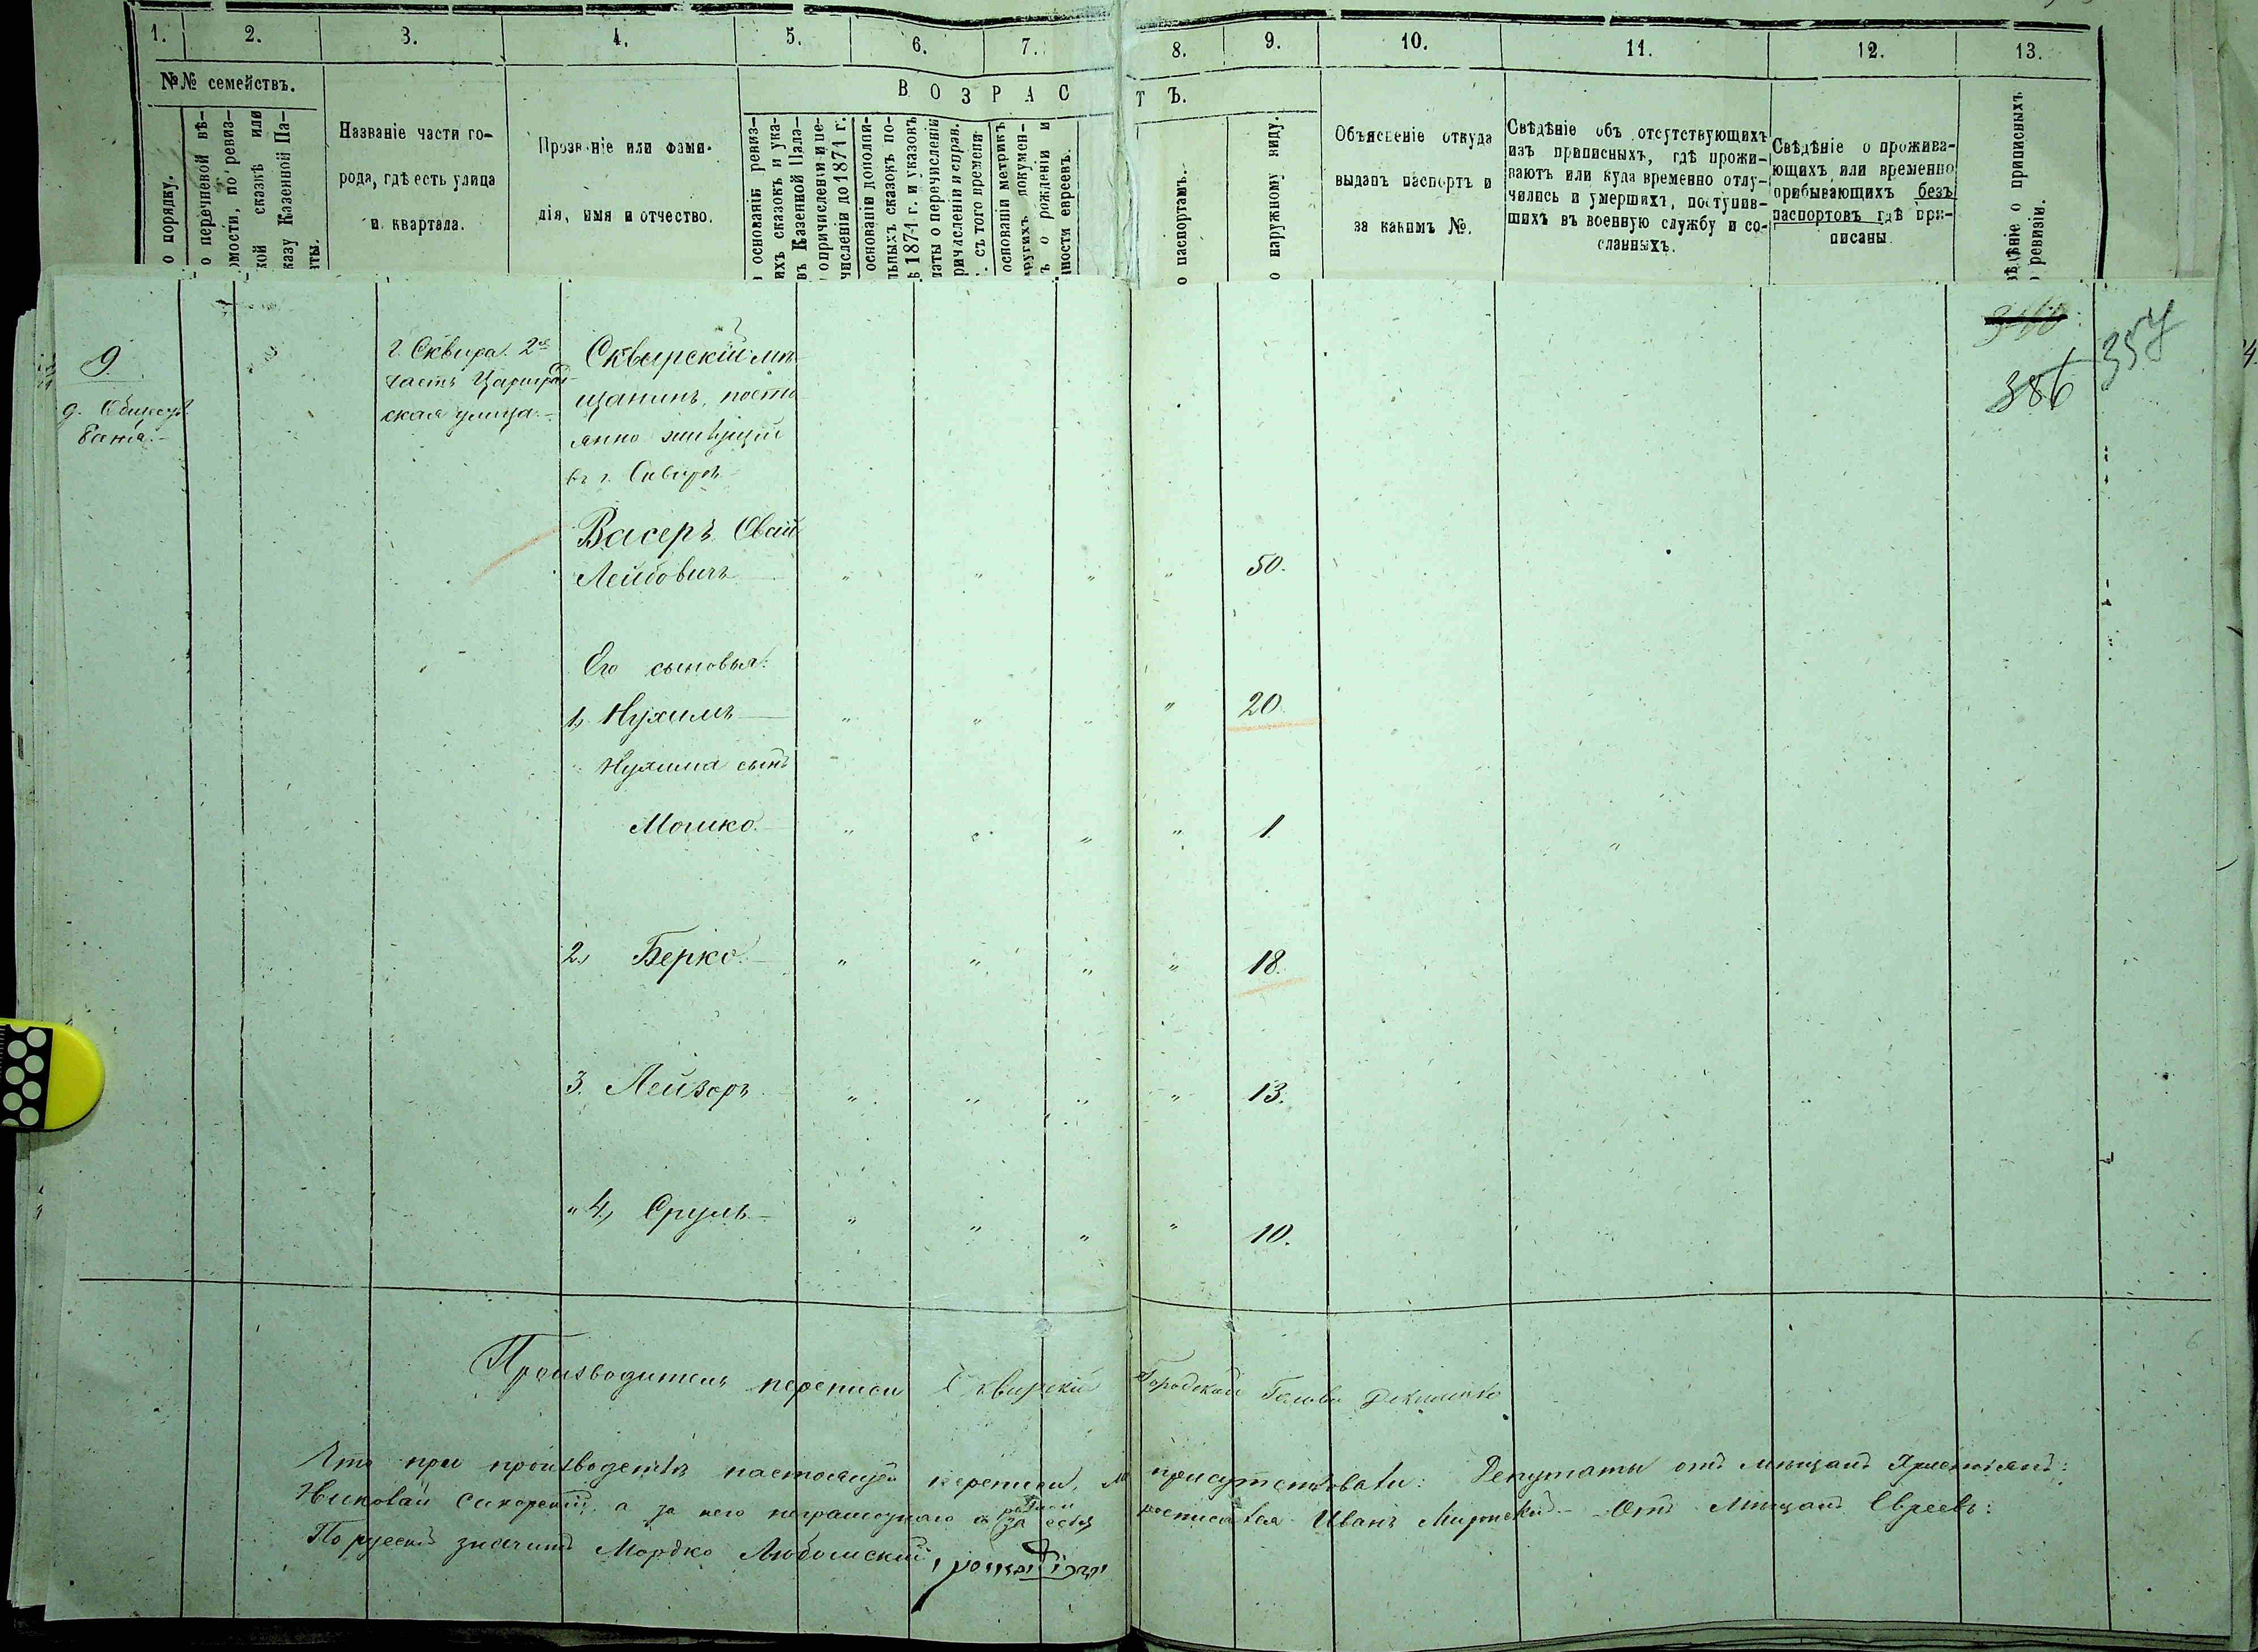 1. 2. 3. 4. 5. 6. 7. 8. 9. 10. 11. 12. 13.
№№ семействъ.
о порядку.
о перечневой вѣ-
омости, по ревиз-
кой сказкѣ или
казу Казенной Па-
аты.
Названіе части го-
рода, гдѣ есть улица
и квартала.
Прозваніе или фами-
лія, имя и отчество.
ВОЗРАСТЪ.
основаніи ревиз-
ихъ сказокъ и ука-
въ Казенной Пала-
о причисленіи и пе-
численіи до 1874 г.
основаніи дополни-
льныхъ сказокъ по-
ѣ 1874 г. и указовъ
латы о перечисленіи
причисленіи и справ.
съ того времени
основаніи метрикъ
другихъ докумен-
ъ о рожденіи и
ности евреевъ.
о паспортамъ.
о наружному виду.
Объясненіе откуда
выданъ паспортъ и
за какимъ №.
Свѣдѣніе объ отсутствующихъ
изъ приписныхъ, гдѣ прожи-
ваютъ или куда временно отлу-
чились и умершихъ, поступив-
шихъ въ военную службу и со-
сланныхъ.
Свѣдѣніе о прожива-
ющихъ или временно
прибывающихъ безъ
паспортовъ гдѣ при-
писаны.
вѣдѣніе о приписныхъ
о ревизіи.
9
г. Сквира. 2я
часть Цариград-
ская улица.
Сквирскій мѣ-
щанинъ, посто
янно живущій
въ г. Сквирѣ
386
357
Васеръ Овсій
Лейбовичъ 50.
Его сыновья:
1, Нухимъ 20
Нухима сынъ
Мошко 1.
2, Берко 18.
3. Лейзоръ 13.
4, Сруль 10.
Производитель переписи Сквирскій Городской Голова
Что при производствѣ настоящей переписи, присутствовали: Депутаты отъ мѣщанъ Христіянъ:
Николай Сикорскій, а за него неграмотнаго и за себя росписался Иванъ Отъ Мѣщанъ Евреевъ:
По русски значитъ Мордко